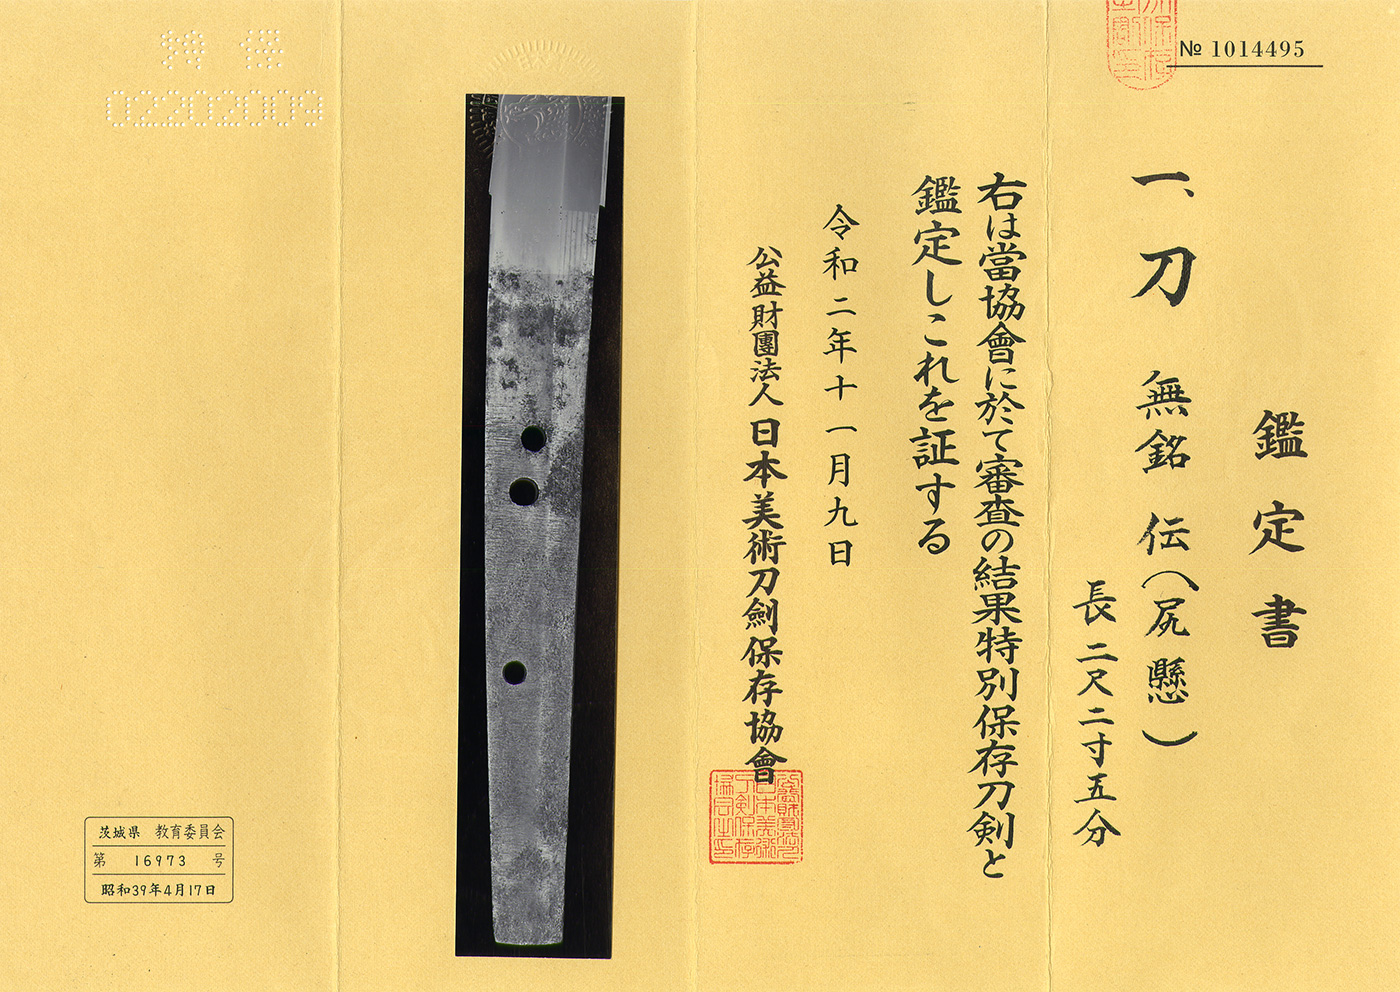 № 1014495
鑑定書
一、刀 無銘 伝(尻懸)
長二尺二寸五分
右は當協會に於て審査の結果特別保存刀剣と
鑑定しこれを証する
令和二年十一月九日
公益財團法人日本美術刀劍保存協會
特 保
02202009
茨城県 教育委員会
第 16973 号
昭和39年4月17日